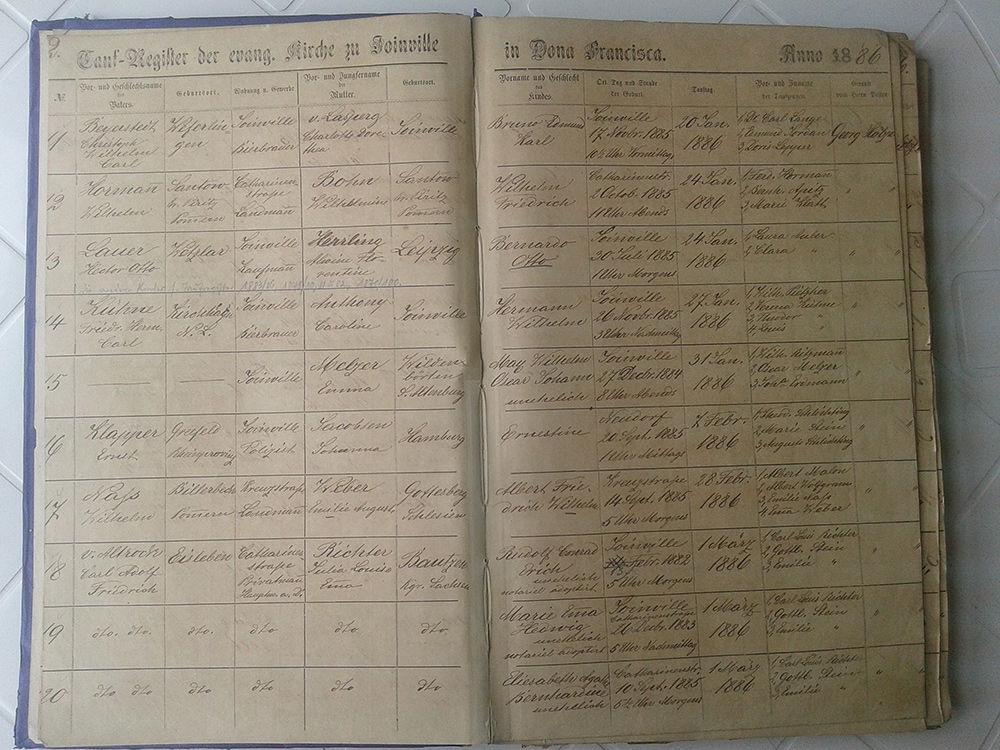 2.
Tauf-Register der evang. Kirche zu Joinville
in Dona Francisca.
Anno 1886
No.
Vor- und Geschlechtsname
des
Vaters.
Geburtsort.
Wohnung u. Gewerbe
Vor- und Jungfername
der
Mutter.
Geburtsort.
Vorname und Geschlecht
des
Kindes.
Ort, Tag und Stunde
der Geburt.
Tauftag
Vor- und Zuname
der Taufzeugen.
Getauft
vom Herrn Pastor
11
Beyerstedt
Christoph
Wilhelm
Carl
Joinville
Bierbrauer
v. Lasperg
Charlotte Doro-
thea
Joinville
Bruno Edmund
Karl
Joinville
17. Novbr. 1885
10½ Uhr Vormittag
20 Jan.
1886
1, Dr. Carl Lange
2, Edmund Jordan
3, Doris Lepper
Georg Hölzel
12
Horman
Wilhelm
Santow
Pomern
Catharinen-
straße
Landmann
Bohn
Wilhelmine
Santow
Pomern
Wilhelm
Friedrich
Catharinenstr.
2 Octob. 1885
11 Uhr Abends
24 Jan.
1886
1, Ferd. Horman
3, Marie
"
"
13
Lauer
Hector Otto
Wetzlar
Joinville
Kaufmann
Herrling
Flo-
rentine
Leipzig
Bernardo
Otto
Joinville
30 Juli 1885
1 Uhr Morgens
24 Jan.
1886
1, Laura Auler
2, Clara "
"
"
14
Kühne
Friedr. Herm.
Carl
N. L.
Joinville
Bierbrauer
Anthony
Caroline
Joinville
Hermann
Wilhelm
Joinville
26 Novbr. 1885
3 Uhr Nachmittag
27 Jan.
1886
2, Verena Kühne
3, Theodor "
4, Louis "
"
"
15
Joinville
Melzer
Emma
Wilden-
börten
S. Altenburg
Max Wilhelm
Oscar Johann
unehelich
Joinville
27 Decbr. 1884
8 Uhr Abends
31 Jan.
1886
1, Wilh. Ritzman
2, Oscar Melzer
3, Erdmann
"
"
16
Klapper
Ernst
Joinville
Polizist
Jacobsen
Johanna
Hamburg
Ernestine
Neudorf
20 Sept. 1885
1 Uhr Mittags
7 Febr.
1886
1, Theod. Schlichting
2, Marie Stein
3, Auguste Schlichting
"
"
17
Naß
Wilhelm
Pomern
Kreuzstraße
Landmann
Weber
Emilie August.
Gottesberg
Schlesien
Albert Frie-
drich Wilhelm
Kreuzstraße
14 Sept. 1885
5 Uhr Morgens
28 Febr.
1886
1, Albert Malon
2, Albert Wolfgramm
3, Emilie Naß
4, Ema Weber
"
"
18
v. Altrock
Carl Adolf
Friedrich
Eisleben
Catharinen
straße
Privatman
Hauptm. a. D.
Richter
Julia Louise
Ema
Bautzen
Kgr. Sachsen
Rudolf Conrad
Erich
unehelich
notariel adoptirt
Joinville
Febr. 1882
5 Uhr Morgens
1 März
1886
1, Carl Luis Richter
2, Gottl. Stein
3, Emilie "
"
"
19
dto. dto.
dto
dto
dto
dto
Marie Ema
Hedwig
unehelich
notariel adoptirt
Joinville
Catharinenstraße
26 Decbr. 1883
5 Uhr Nachmittag
1 März
1886
1, Carl Luis Richter
2, Gottl. Stein
3, Emilie "
"
"
20
dto dto
dto
dto
dto
dto
Elisabeth Agate
Bernhardine
unehelich
Catharinenstr.
10 Sept. 1885
5½ Uhr Morgens
1 März
1886
1, Carl Luis Richter
2, Gottl. Stein
3, Emilie "
"
"